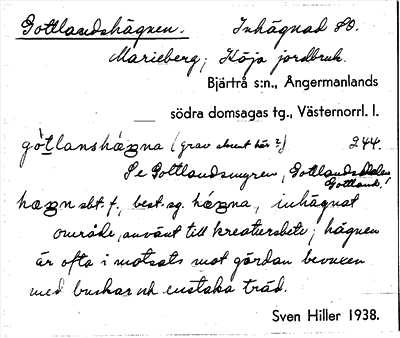 Gottlandshägnen. Inhägnad 80.
Marieberg; Höja jordbruk.
Bjärtrå s:n., Ångermanlands
södra domsagas tg., Västernorrl. l.
gòtlanshæŋna (grav absent här?) 244.
Se Gottlandsmyren, Gottlands
Gottland!
hæŋn sbt. f., best. sg. hæŋna, inhägnat
område, använt till kreatursbete; hägnen
är ofta i motsats mot gärdan bevuxen
med buskar och enstaka träd.
Sven Hiller 1938.